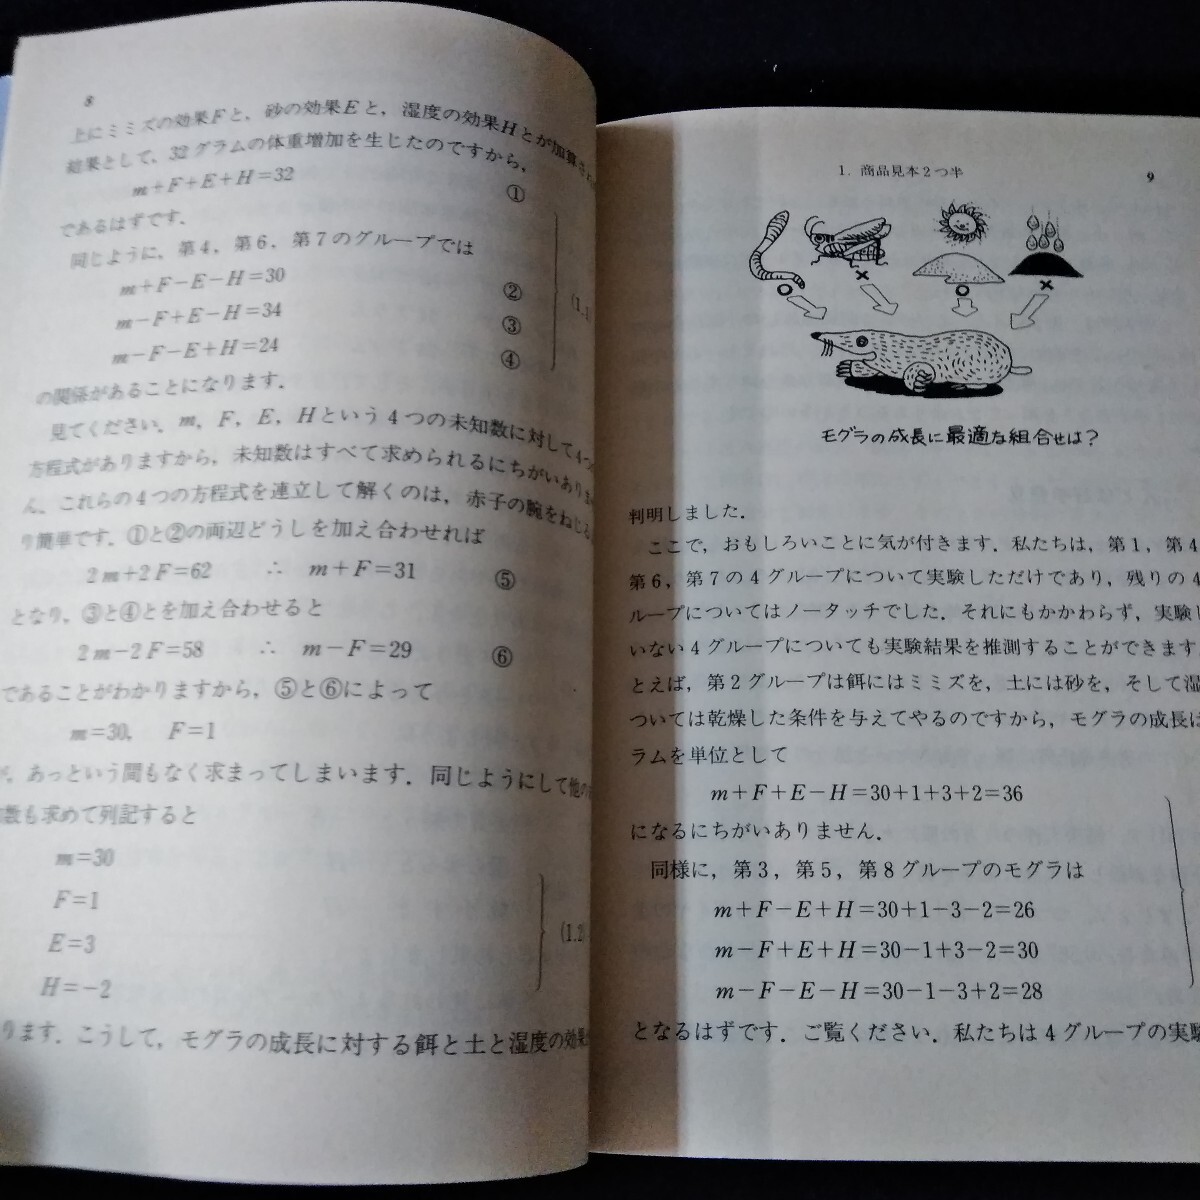 8
上にミミズの効果Fと，砂の効果Eと，湿度の効果Hとが加算さ
結果として，32グラムの体重増加を生じたのですから，
m+F+E+H=32 ①
であるはずです．
同じように，第4，第6，第7のグループでは
m+F−E−H=30 ②
m−F+E−H=34 ③
m−F−E+H=24 ④
(1.1
の関係があることになります．
見てください．m，F，E，Hという4つの未知数に対して4つ
方程式がありますから，未知数はすべて求められるにちがいありま
ん．これらの4つの方程式を連立して解くのは，赤子の腕をねじる
り簡単です．①と②の両辺どうしを加え合わせれば
2m+2F=62 ∴ m+F=31 ⑤
となり，③と④とを加え合わせると
2m−2F=58 ∴ m−F=29 ⑥
であることがわかりますから，⑤と⑥によって
m=30, F=1
が，あっという間もなく求まってしまいます．同じようにして他の
数も求めて列記すると
m=30
F=1
E=3
H=−2
(1.2)
ります．こうして，モグラの成長に対する餌と土と湿度の効果
1. 商品見本2つ半
9
モグラの成長に最適な組合せは？
判明しました．
ここで，おもしろいことに気が付きます．私たちは，第1，第4
第6，第7の4グループについて実験しただけであり，残りの4
ループについてはノータッチでした．それにもかかわらず，実験し
いない4グループについても実験結果を推測することができます
とえば，第2グループは餌にはミミズを，土には砂を，そして湿
ついては乾燥した条件を与えてやるのですから，モグラの成長は
ラムを単位として
m+F+E−H=30+1+3+2=36
になるにちがいありません．
同様に，第3，第5，第8グループのモグラは
m+F−E+H=30+1−3−2=26
m−F+E+H=30−1+3−2=30
m−F−E−H=30−1−3+2=28
となるはずです．ご覧ください．私たちは4グループの実験